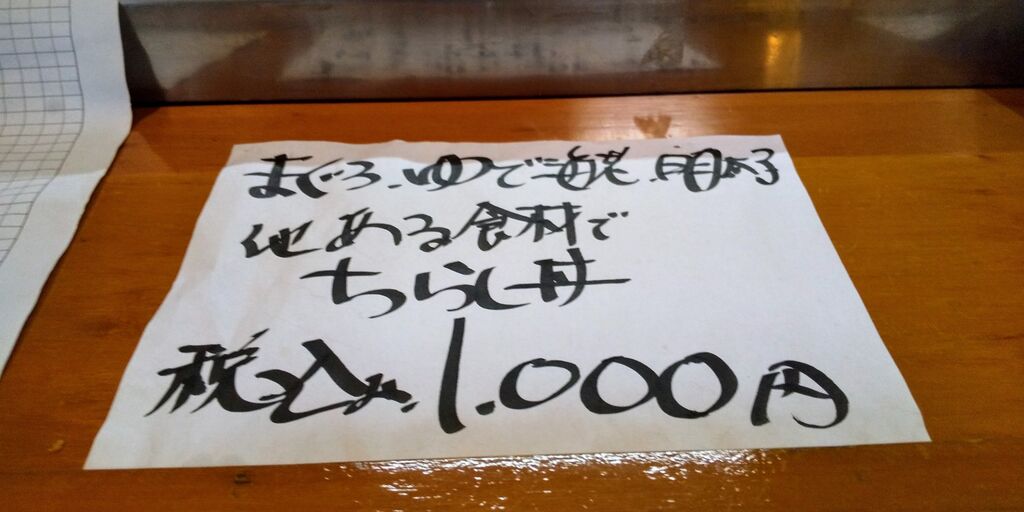 まぐろ、ゆで海老、明太子
他ある食材で
ちらし丼
税込み、1.000円